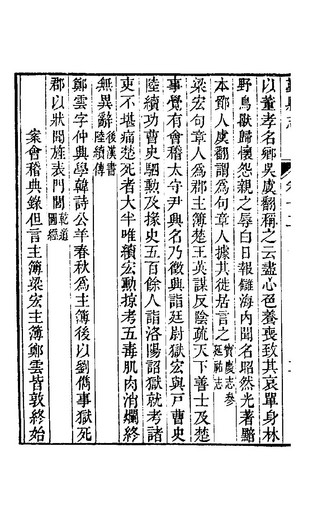 以董孝名鄉吳虞翻稱之云盡心色養喪致其哀單身林
野鳥獸歸懷怨親之辱白日報讎海內聞名昭然光著黯
本鄞人虞翻謂為句章人據其徙居言之寶慶志參延祐志
梁宏句章人為郡主簿楚王英謀反陰疏天下善士及楚
事覺有會稽太守尹興名乃徵興詣廷尉獄宏與戸曹史
陸續功曹史駟勳及掾史五百餘人詣洛陽詔獄就考諸
吏不堪痛楚死者大半唯續宏勳掠考五毒肌肉消爛終
無異辭後漢書陸續傳
鄭雲字仲興學韓詩公羊春秋為主簿後以劉儁事獄死
郡以狀聞旌表門閭乾道圖經
案會稽典錄但言主簿梁宏主簿鄭雲皆敦終始